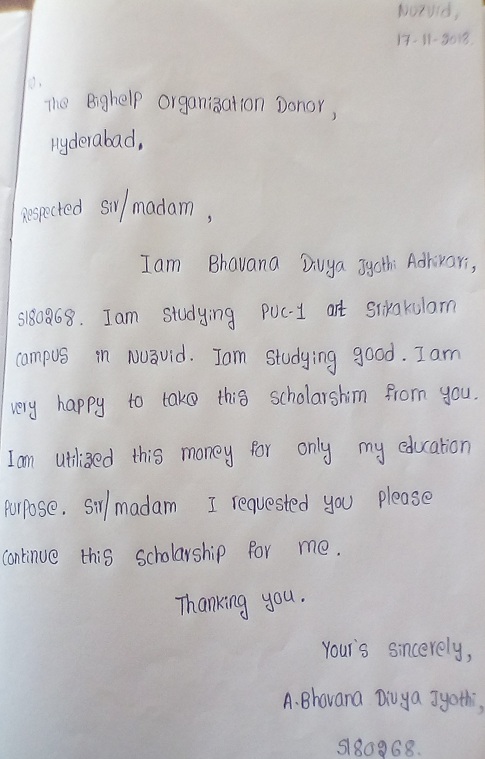 Nuzvid,
17-11-2018.
The Bighelp Organization Donor,
Hyderabad.
Respected Sir/madam,
I am Bhavana Divya Jyothi Adhikari,
S180268. I am studying PUC-1 at Srikakulam
campus in Nuzvid. I am studying good. I am
very happy to take this scholarshim from you.
I am utilized this money for only my education
purpose. Sir/madam I requested you please
continue this scholarship for me.
Thanking you.
Your's sincerely,
A.Bhavana Divya Jyothi,
S180268.